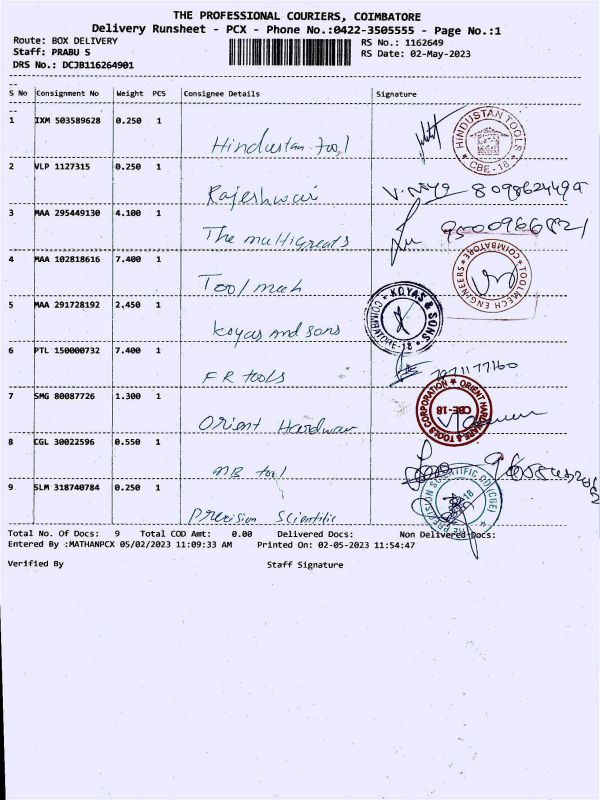 THE PROFESSIONAL COURIERS, COIMBATORE
Delivery Runsheet - PCX - Phone No.:0422-3505555 - Page No.:1
Route: BOX DELIVERY
RS No.: 1162649
Staff: PRABU S
RS Date: 02-May-2023
DRS No.: DCJB116264901
S No Consignment No Weight PCS Consignee Details Signature
1 IXM 503589628 0.250 1
Hindustan tool
HINDUSTAN TOOLS CBE-18
2 VLP 1127315 0.250 1
Rajeshwari
3 MAA 295449130 4.100 1
The multigreats
4 MAA 102818616 7.400 1
Tool mech
COIMBATORE TOOL MECH ENGINEERS
5 MAA 291728192 2.450 1
koyas and sons
KOYAS & SONS COIMBATORE-18
6 PTL 150000732 7.400 1
FR tools
7 SMG 80087726 1.300 1
Orient Hardware
ORIENT HARDWARE & TOOLS CORPORATION CBE-18
8 CGL 30022596 0.550 1
MB tool
9 SLM 318740784 0.250 1
Precision Scientific
PRECISION SCIENTIFIC CO (CBE)
Total No. Of Docs: 9 Total COD Amt: 0.00 Delivered Docs: Non Delivered Docs:
Entered By :MATHANPCX 05/02/2023 11:09:33 AM Printed On: 02-05-2023 11:54:47
Verified By Staff Signature